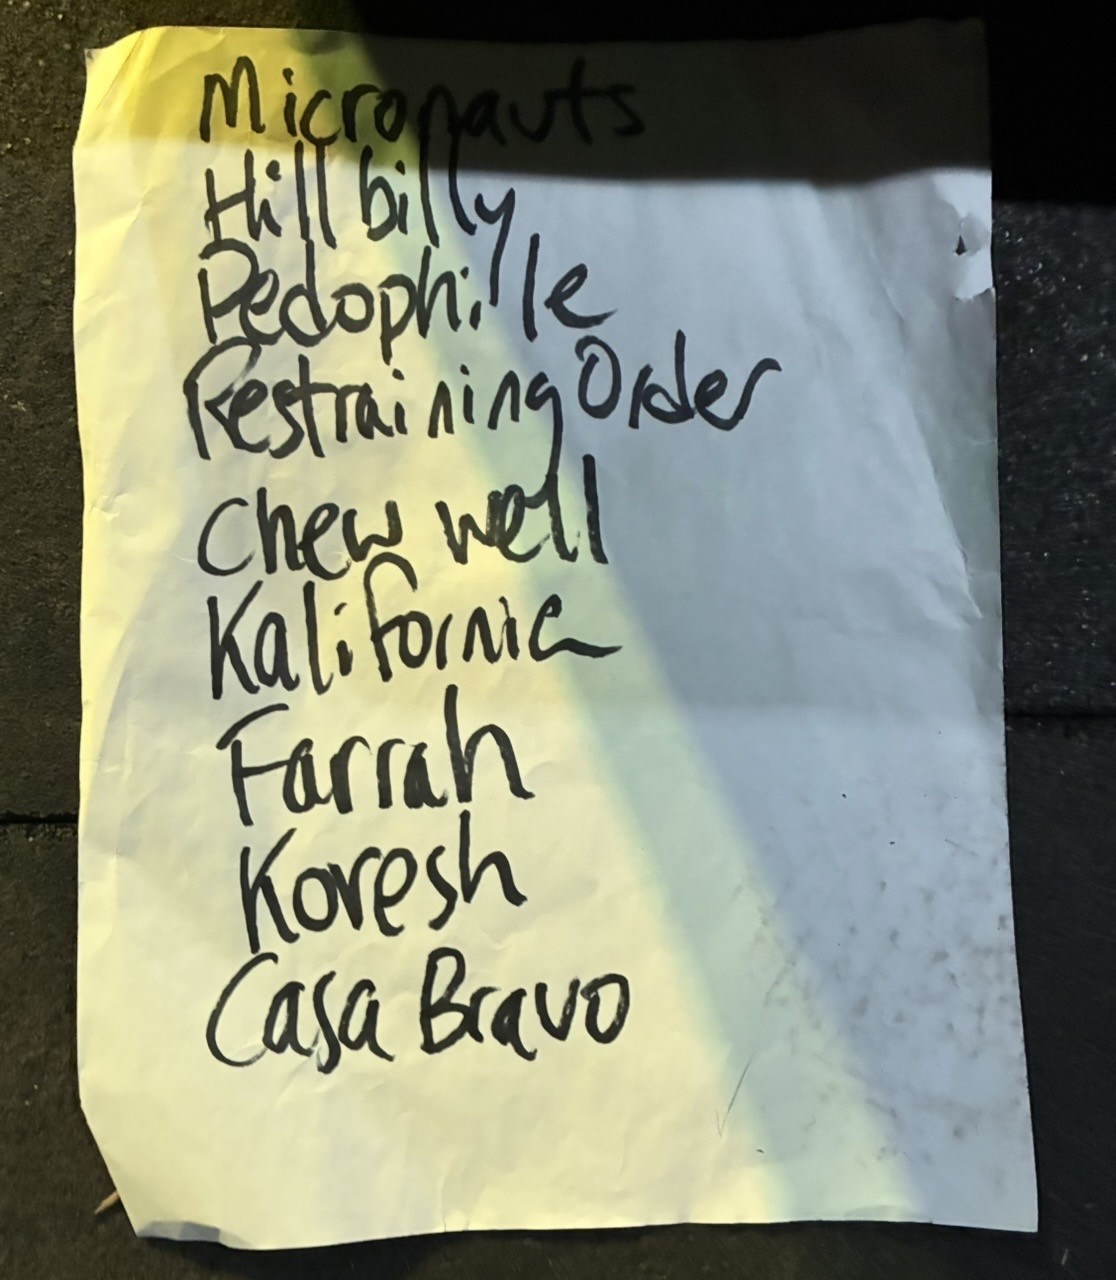 Micronauts
Hillbilly
Pedophile
Restraining Order
Chew well
Kalifornia
Farrah
Koresh
Casa Bravo